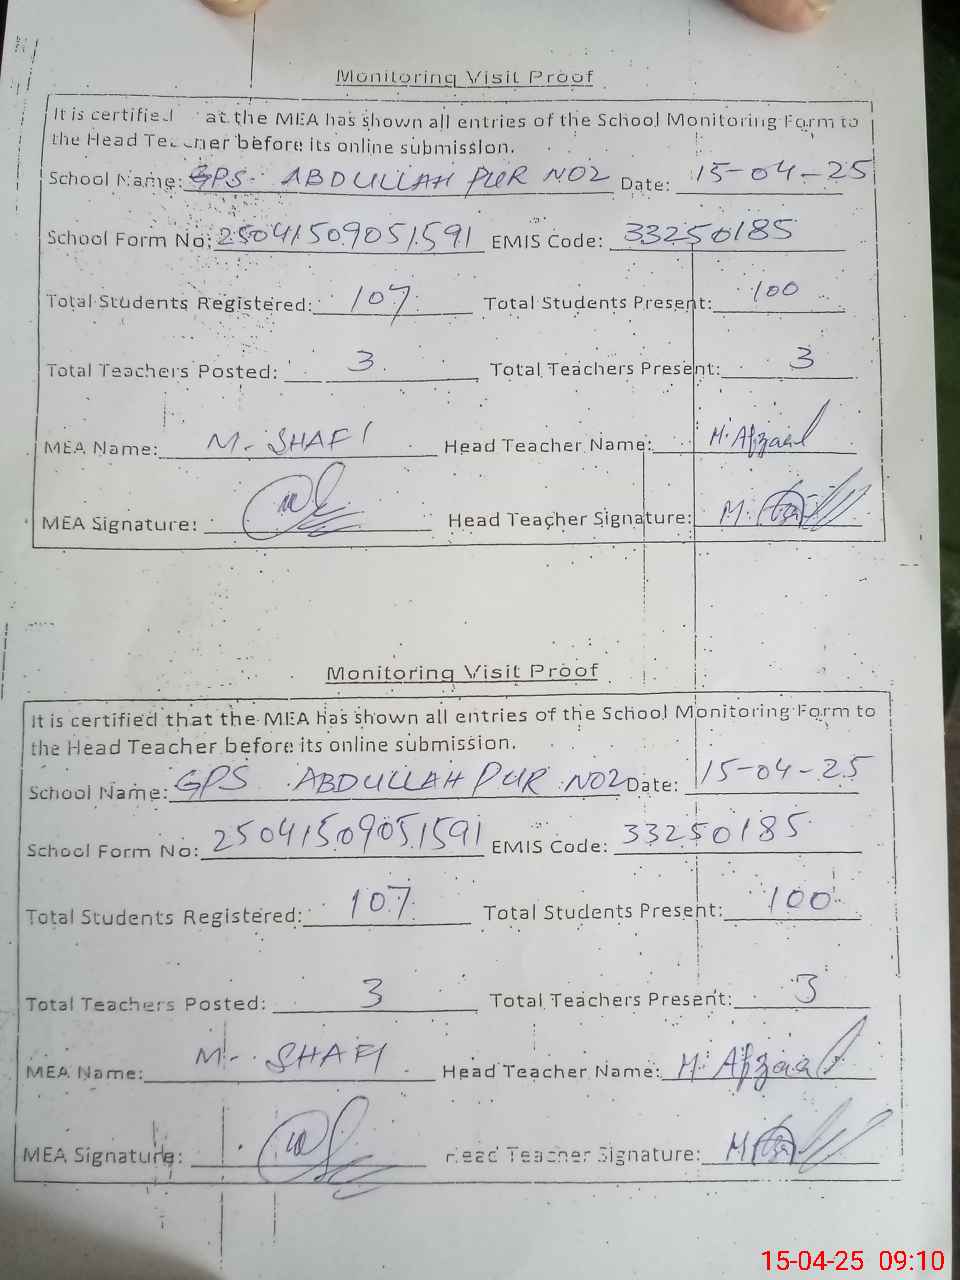 Monitoring Visit Proof
It is certified at the MEA has shown all entries of the School Monitoring Form to
the Head Teacher before its online submission.
School Name: GPS ABDULLAH PUR NO2 Date: 15-04-25
School Form No: 25041509051591 EMIS Code: 33250185
Total Students Registered: 107 Total Students Present: 100
Total Teachers Posted: 3 Total Teachers Present: 3
MEA Name: M-SHAFI Head Teacher Name: M. Afzaal
MEA Signature: Head Teacher Signature: M.
Monitoring Visit Proof
It is certified that the MEA has shown all entries of the School Monitoring Form to
the Head Teacher before its online submission.
School Name: GPS ABDULLAH PUR NO2 Date: 15-04-25
School Form No: 25041509051591 EMIS Code: 33250185
Total Students Registered: 107 Total Students Present: 100
Total Teachers Posted: 3 Total Teachers Present: 3
MEA Name: M-SHAFI Head Teacher Name: M. Afzaal
MEA Signature: Head Teacher Signature: M
15-04-25 09:10